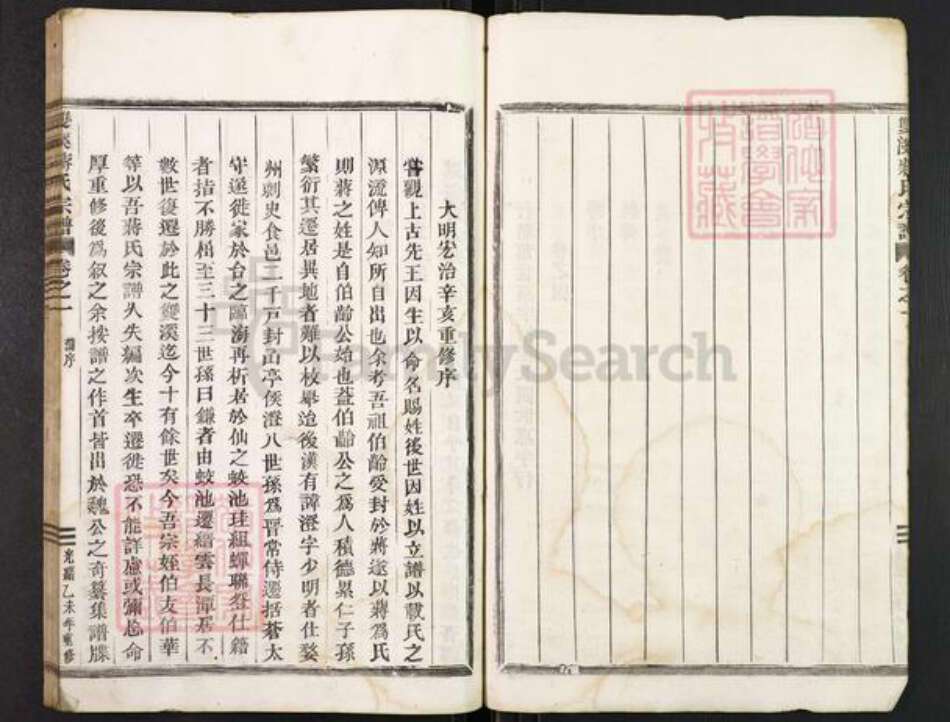 雙溪蔣氏宗譜 卷之一
大明宏治辛亥重修序
嘗觀上古先王因生以命名賜姓後世因姓以立譜以載氏之
源流俾人知所自出也余考吾祖伯齡受封於蔣遂以蔣爲氏
則蔣之姓是自伯齡公始也葢伯齡公之爲人積德累仁子孫
繁衍其遷居異地者難以枚舉迨後漢有諱澄字少明者仕婺
州刺史食邑二千戸封凾亭侯澄八世孫爲晋常侍遷括蒼太
守遂徙家於台之臨海再析居於仙之蛟池珪組蟬聯登仕籍
者指不勝屈至三十三世孫曰鎌者由蛟池遷縉雲長潭居不
數世復遷於此之雙溪迄今十有餘世矣今吾宗姪伯友伯華
等以吾蔣氏宗譜久失編次生卒遷徙恐不能詳慮或彌怠命
厚重修後爲叙之余按譜之作首皆出於魏公之奇纂集譜牒
雙溪蔣氏宗譜 卷之一 譜序 光緒乙未年重修
FamilySearch